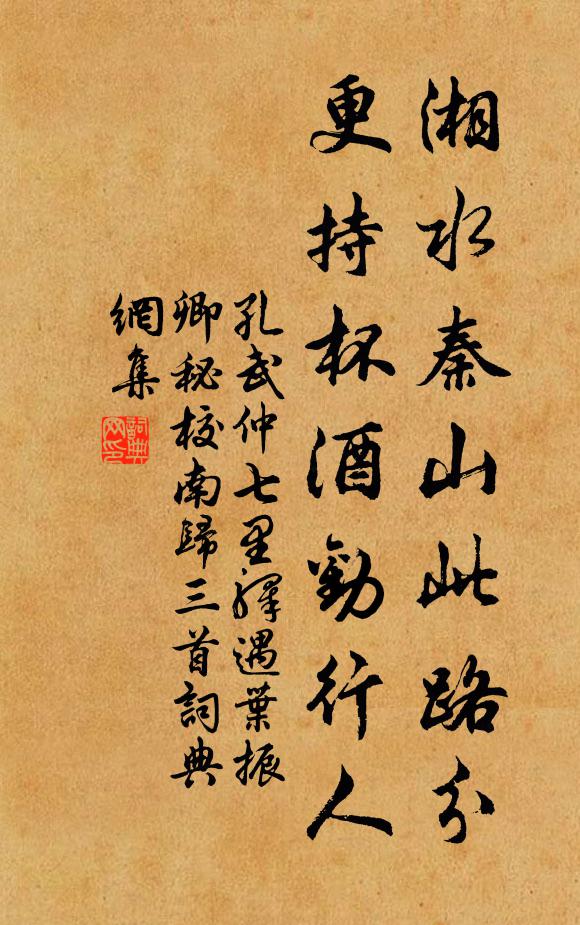 湘水秦山此路分
更持杯酒勸行人
孔武仲七里驛遇葉振
卿秘校南歸三首詞典
網集
詞典
网印